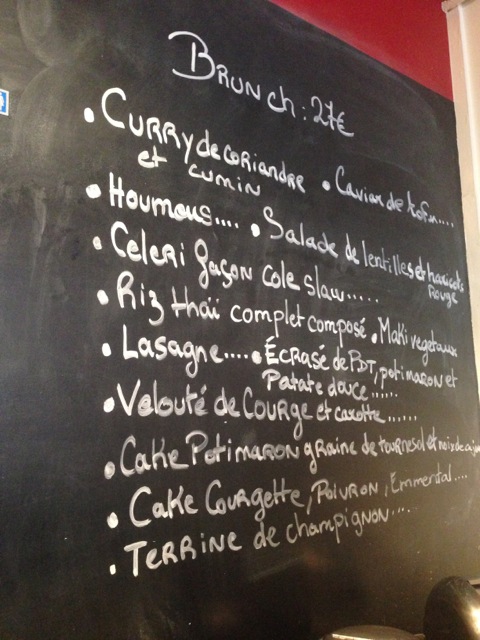 Brunch : 27€
• Curry de coriandre
et cumin
• Caviar de tofu....
• Houmous....
• Salade de lentilles et haricots
Rouge
• Celeri façon cole slaw.....
• Riz thaï complet composé
• Maki vegetaux
• Lasagne....
• Écrasé de PDT, potimaron et
Patate douce......
• Velouté de Courge et carotte......
• Cake Potimaron graine de tournesol et noix de
• Cake Courgette, Poivron, Emmental....
• Terrine de champignon....